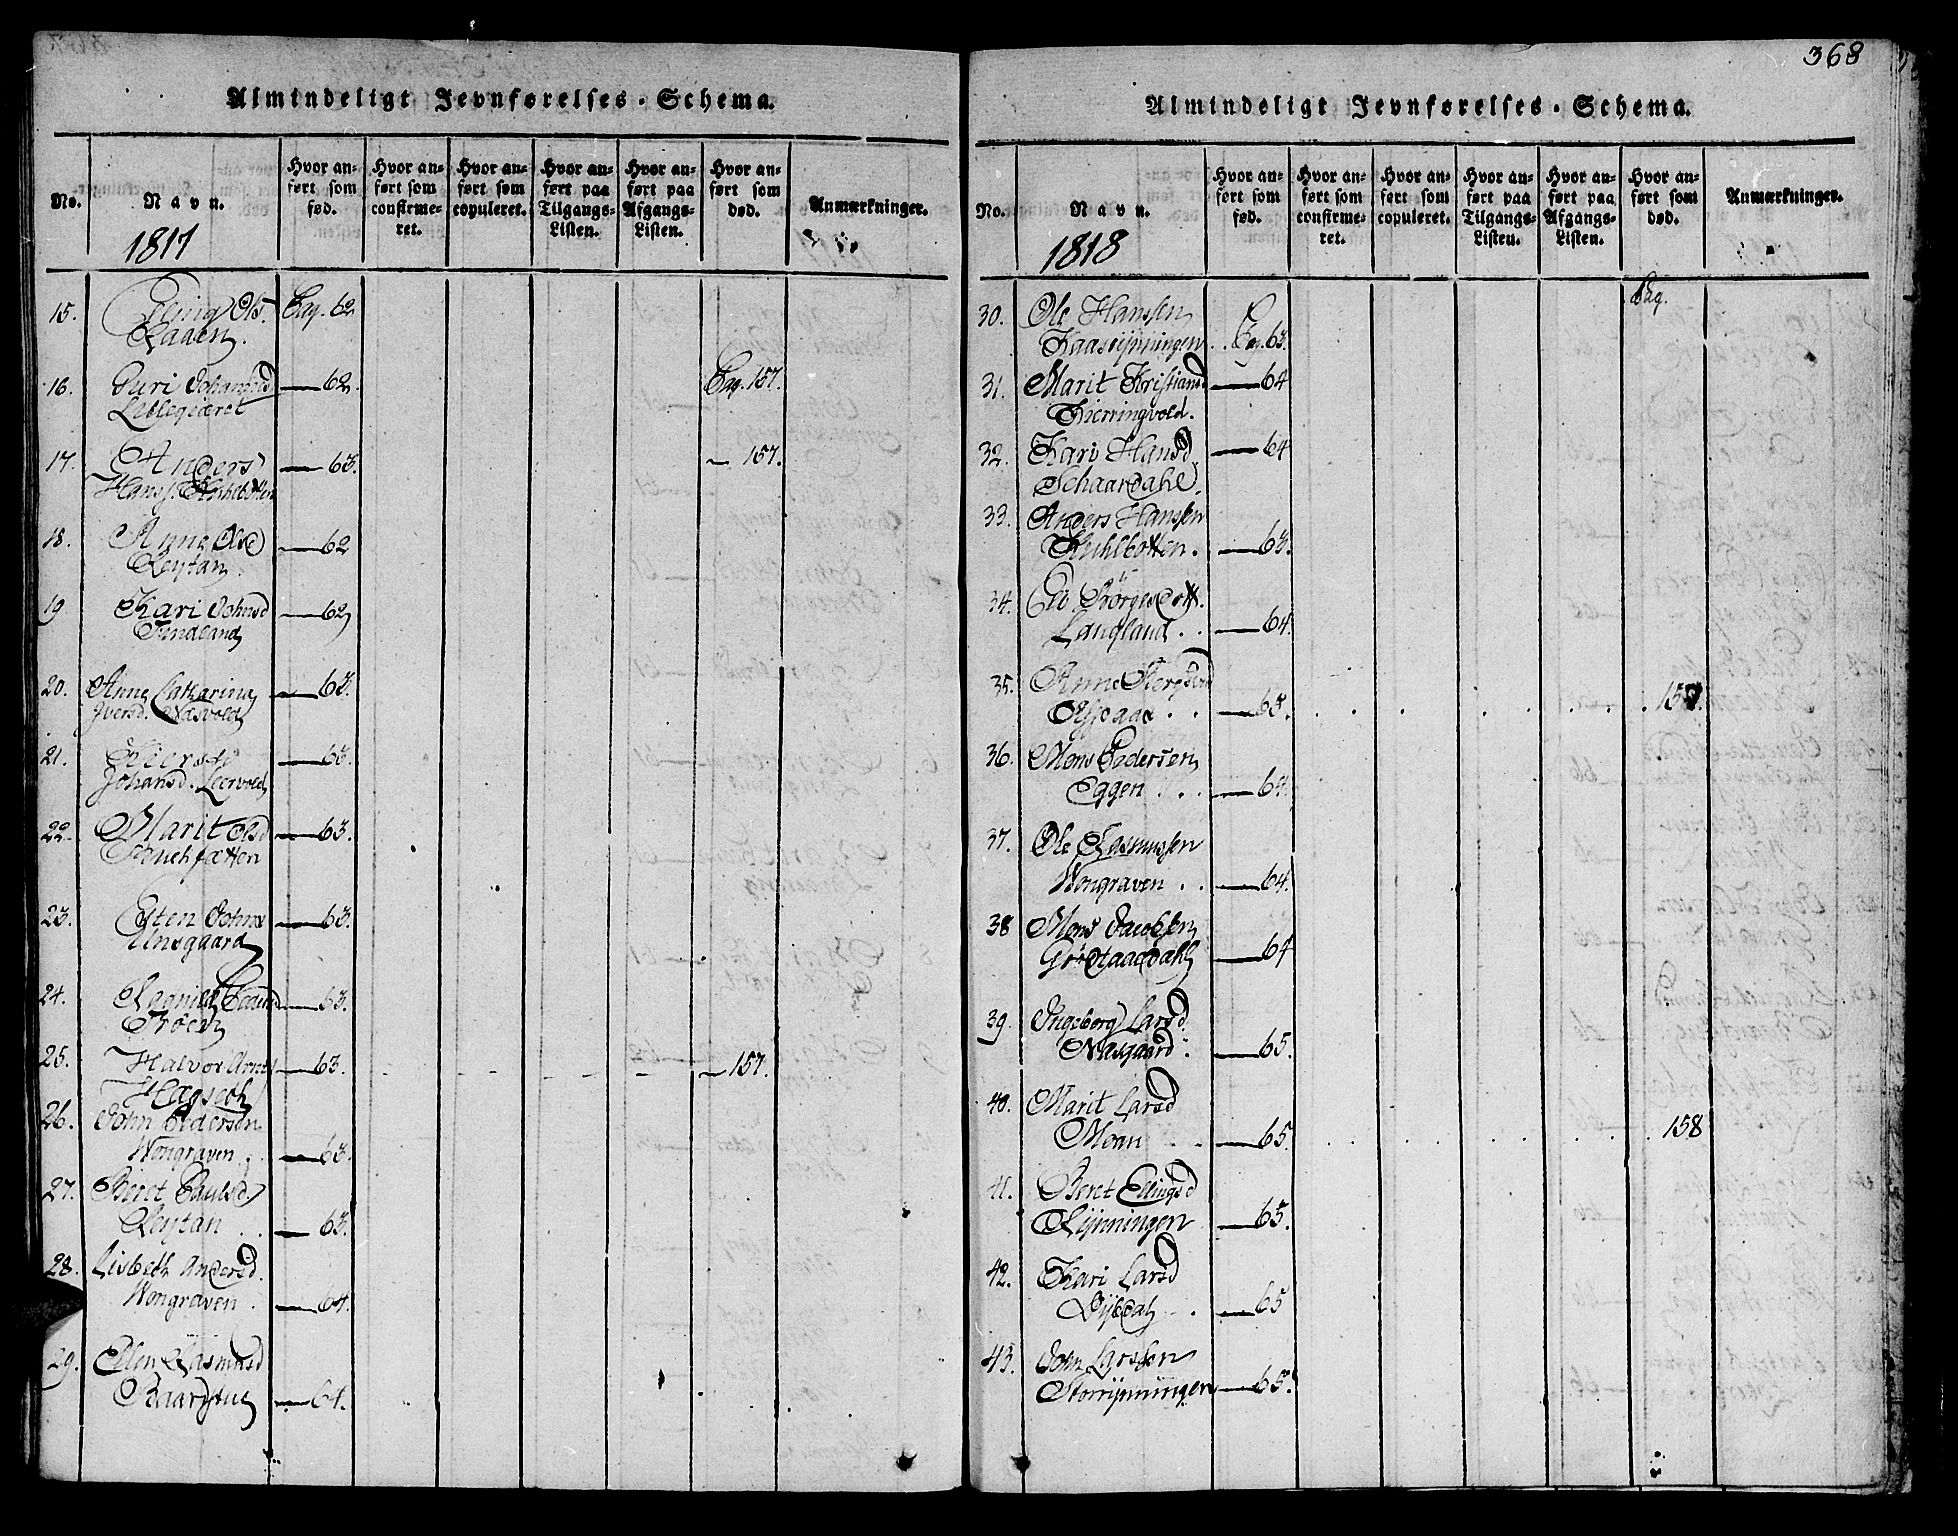 368
Almindeligt Jevnførelses-Schema.
No. Navn. Hvor anført som fød. Hvor anført som confirmeret. Hvor anført som copuleret. Hvor anført paa Tilgangs-Listen. Hvor anført paa Afgangs-Listen. Hvor anført som død. Anmærkninger.
1817
15. Elling Ols. Pag. 62
Raaen.
16. Guri Johansd 62. Pag. 157.
17. Anders 63. 157.
Hanss.
18. Anne Olsd 62
Reytan.
19 Kari Johnsd 62
20. Anne Catharina 63.
Iversd. Næsvold
21. Kiersti 63.
Johansd. Leervold
22. Marit Olsd 63.
23. Esten Johns 63.
Unsgaard
24. Ragnild Pedersd 63.
Trøen
25. Halvor 63. 157.
Hagseth
26. John Pedersen
Wongraven. 63.
27. Beret Paulsd.
Reytan 63.
28. Lisbeth Andersd.
Wongraven. 64.
29. Ellen Rasmusd
64.
Almindeligt Jevnførelses-Schema.
No. Navn. Hvor anført som fød. Hvor anført som confirmeret. Hvor anført som copuleret. Hvor anført paa Tilgangs-Listen. Hvor anført paa Afgangs-Listen. Hvor anført som død. Anmærkninger.
1818
Pag.
30. Ole Hansen
Kaasrypningen Pag. 63.
31. Marit Kristiansd 64
Kierringvold.
32. Kari Hansd 64
Schaardahl.
33. Anders Hansen
63.
34.
Langland 64.
35. Anne
Aspaas 65. 157.
36. Mons Pedersen
Eggen 64.
37. Ole Rasmussen
Wongraven 64.
38 Mons Jacobsen
64
39. Ingeborg Larsd
Næsgaard 65.
40. Marit Larsd
Moan 65. 158
41. Beret Ellingsd
Rypningen 65.
42. Kari Larsd
65
43. John Larsen
Storrypningen 65.